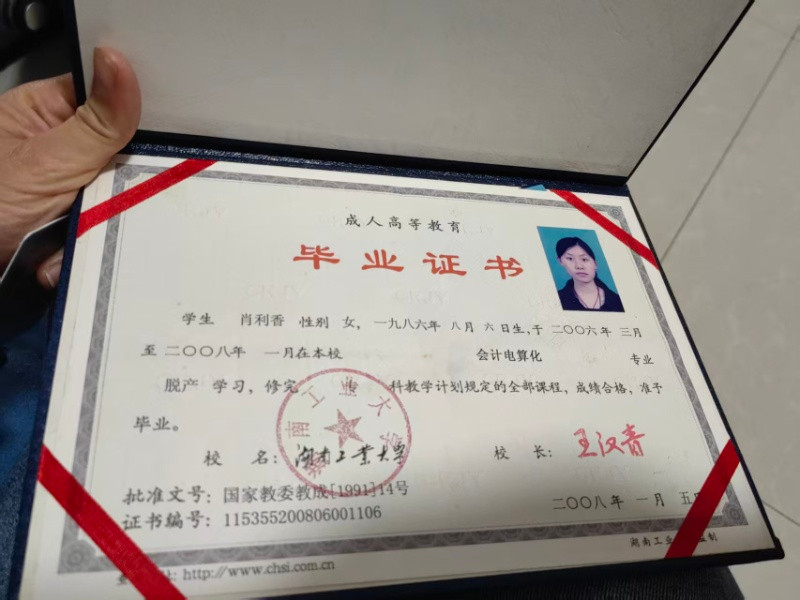 成人高等教育
毕业证书
学生 肖利香 性别 女，一九八六年 八月 六日生，于 二〇〇六年 三月
至 二〇〇八年 一月在本校 会计电算化 专业
脱产 学习，修完 专 科教学计划规定的全部课程，成绩合格，准予
毕业。
校 名：湖南工业大学
校 长：王汉青
湖南工业大学
批准文号：国家教委教成[1991]14号
二〇〇八年 一月 五
证书编号：115355200806001106
湖南工业 监制
址：http://www.chsi.com.cn